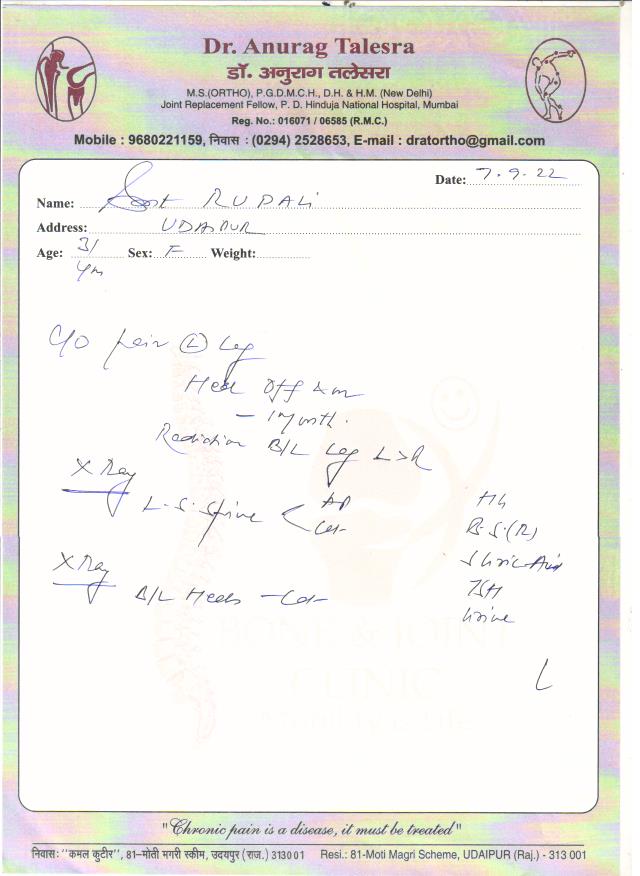 Dr. Anurag Talesra
डॉ. अनुराग तलेसरा
M.S.(ORTHO), P.G.D.M.C.H., D.H. & H.M. (New Delhi)
Joint Replacement Fellow, P. D. Hinduja National Hospital, Mumbai
Reg. No.: 016071 / 06585 (R.M.C.)
Mobile : 9680221159, निवास : (0294) 2528653, E-mail : dratortho@gmail.com
Date: 7.9.22
Name: RUPALI
Address: UDAIPUR
Age: 31/ Sex: F Weight:
C/O pain (L) Leg
Heel
- 1 month.
Radiation B/L Leg L>R
X Ray
L-S. Spine AP
Lat
Hb
B.S.(R)
S Uric Acid
X Ray
B/L Heels - Lat
TSH
Urine
BONE & JOINT
CLINIC
Mobility is Life
"Chronic pain is a disease, it must be treated"
निवास: "कमल कुटीर", 81–मोती मगरी स्कीम, उदयपुर (राज.) 313001 Resi.: 81-Moti Magri Scheme, UDAIPUR (Raj.) - 313 001